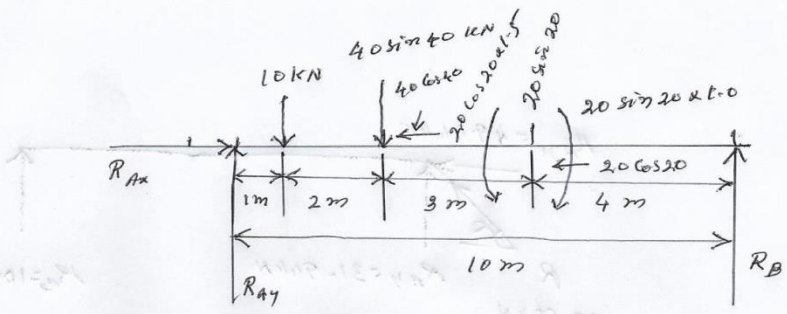 40 sin 40 KN
10 KN
40 Cos 40
20 Cos 20 x 1.5
20 Sin 20
20 sin 20 x 1.0
RAx
20 Cos 20
1m
2 m
3 m
4 m
10 m
RB
RAy